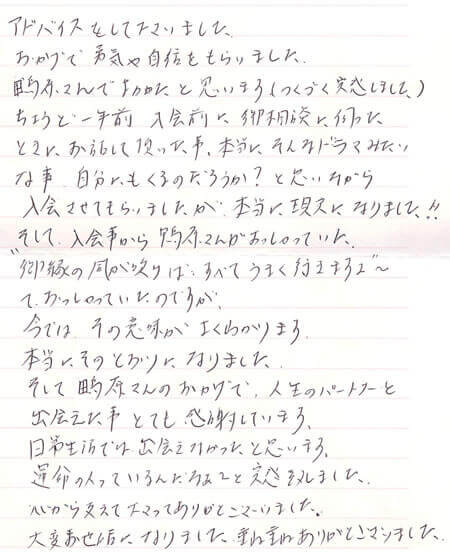 アドバイスをして下さいました。
おかげで勇気や自信をもらいました。
鴫原さんでよかったと思います(つくづく実感しました)
ちょうど一年前 入会前に御相談に伺った
ときに、お話して頂いた事、本当に、そんなドラマみたい
な事 自分にもくるのだろうか?と思いながら
入会させてもらいましたが、本当に現実になりました!!
そして、入会時から鴫原さんがおっしゃっていた、
"御縁の風が吹けば、すべてうまく行きますよ"~
て、おっしゃっていたのですが、
今では その意味が よくわかります。
本当にそのとおりに なりました。
そして 鴫原さんのおかげで、人生のパートナーと
出会えた事 とても 感謝しています。
日常生活では 出会えなかったと思います。
運命の人っているんだなあ~と 実感しました。
心から支えて下さってありがとこざいました。
大変お世話になりました。重ね重ねありがとこざいました。